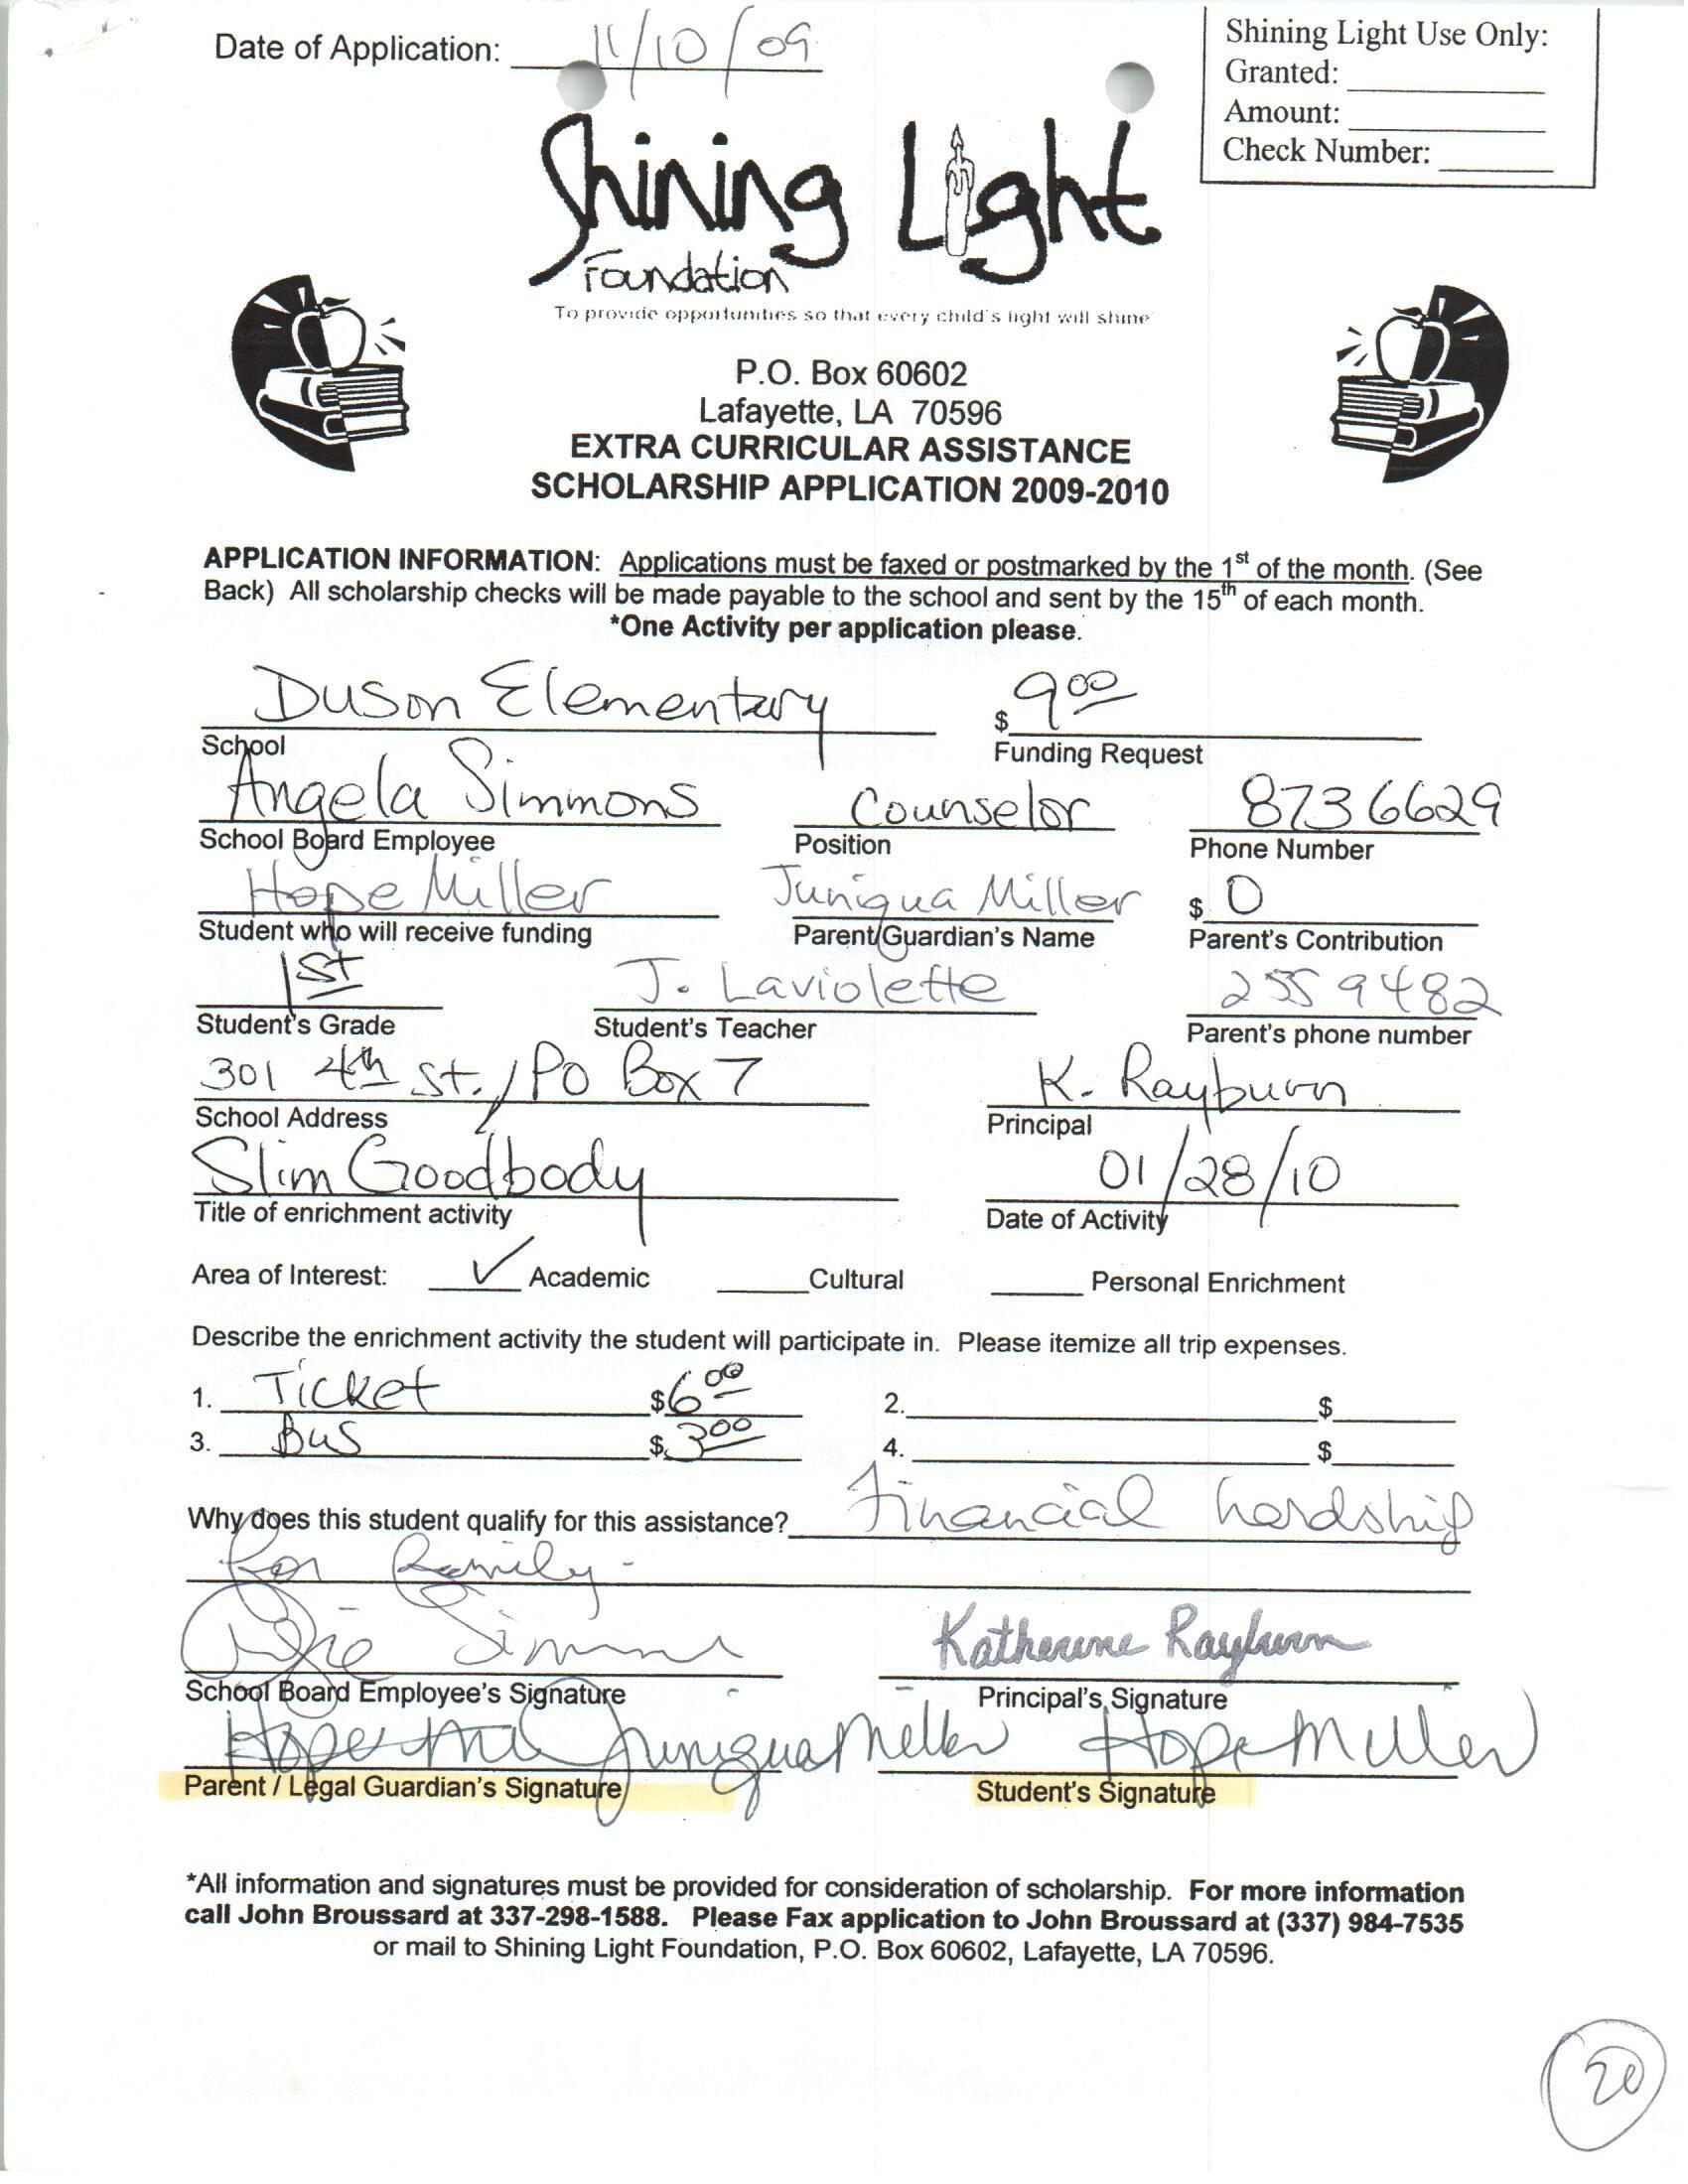 Date of Application: 11/10/09
Shining Light Use Only:
Granted:
Amount:
Check Number:
Shining Light
Foundation
To provide opportunities so that every child's light will shine
P.O. Box 60602
Lafayette, LA 70596
EXTRA CURRICULAR ASSISTANCE
SCHOLARSHIP APPLICATION 2009-2010
APPLICATION INFORMATION: Applications must be faxed or postmarked by the 1st of the month. (See
Back) All scholarship checks will be made payable to the school and sent by the 15th of each month.
*One Activity per application please.
Duson Elementary $ 9 00
School Funding Request
Angela Simmons Counselor 873 6629
School Board Employee Position Phone Number
Hope Miller Juniqua Miller $ 0
Student who will receive funding Parent/Guardian's Name Parent's Contribution
1st J. Laviolette 255 9482
Student's Grade Student's Teacher Parent's phone number
301 4th St. / PO Box 7 K. Rayburn
School Address Principal
Slim Goodbody 01/28/10
Title of enrichment activity Date of Activity
Area of Interest: ✓ Academic Cultural Personal Enrichment
Describe the enrichment activity the student will participate in. Please itemize all trip expenses.
1. Ticket $6 00 2. $
3. Bus $ 3 00 4. $
Why does this student qualify for this assistance? Financial hardship
for family.
Angie Simmons Katherine Rayburn
School Board Employee's Signature Principal's Signature
Hope Juniqua Miller Hope Miller
Parent / Legal Guardian's Signature Student's Signature
*All information and signatures must be provided for consideration of scholarship. For more information
call John Broussard at 337-298-1588. Please Fax application to John Broussard at (337) 984-7535
or mail to Shining Light Foundation, P.O. Box 60602, Lafayette, LA 70596.
20